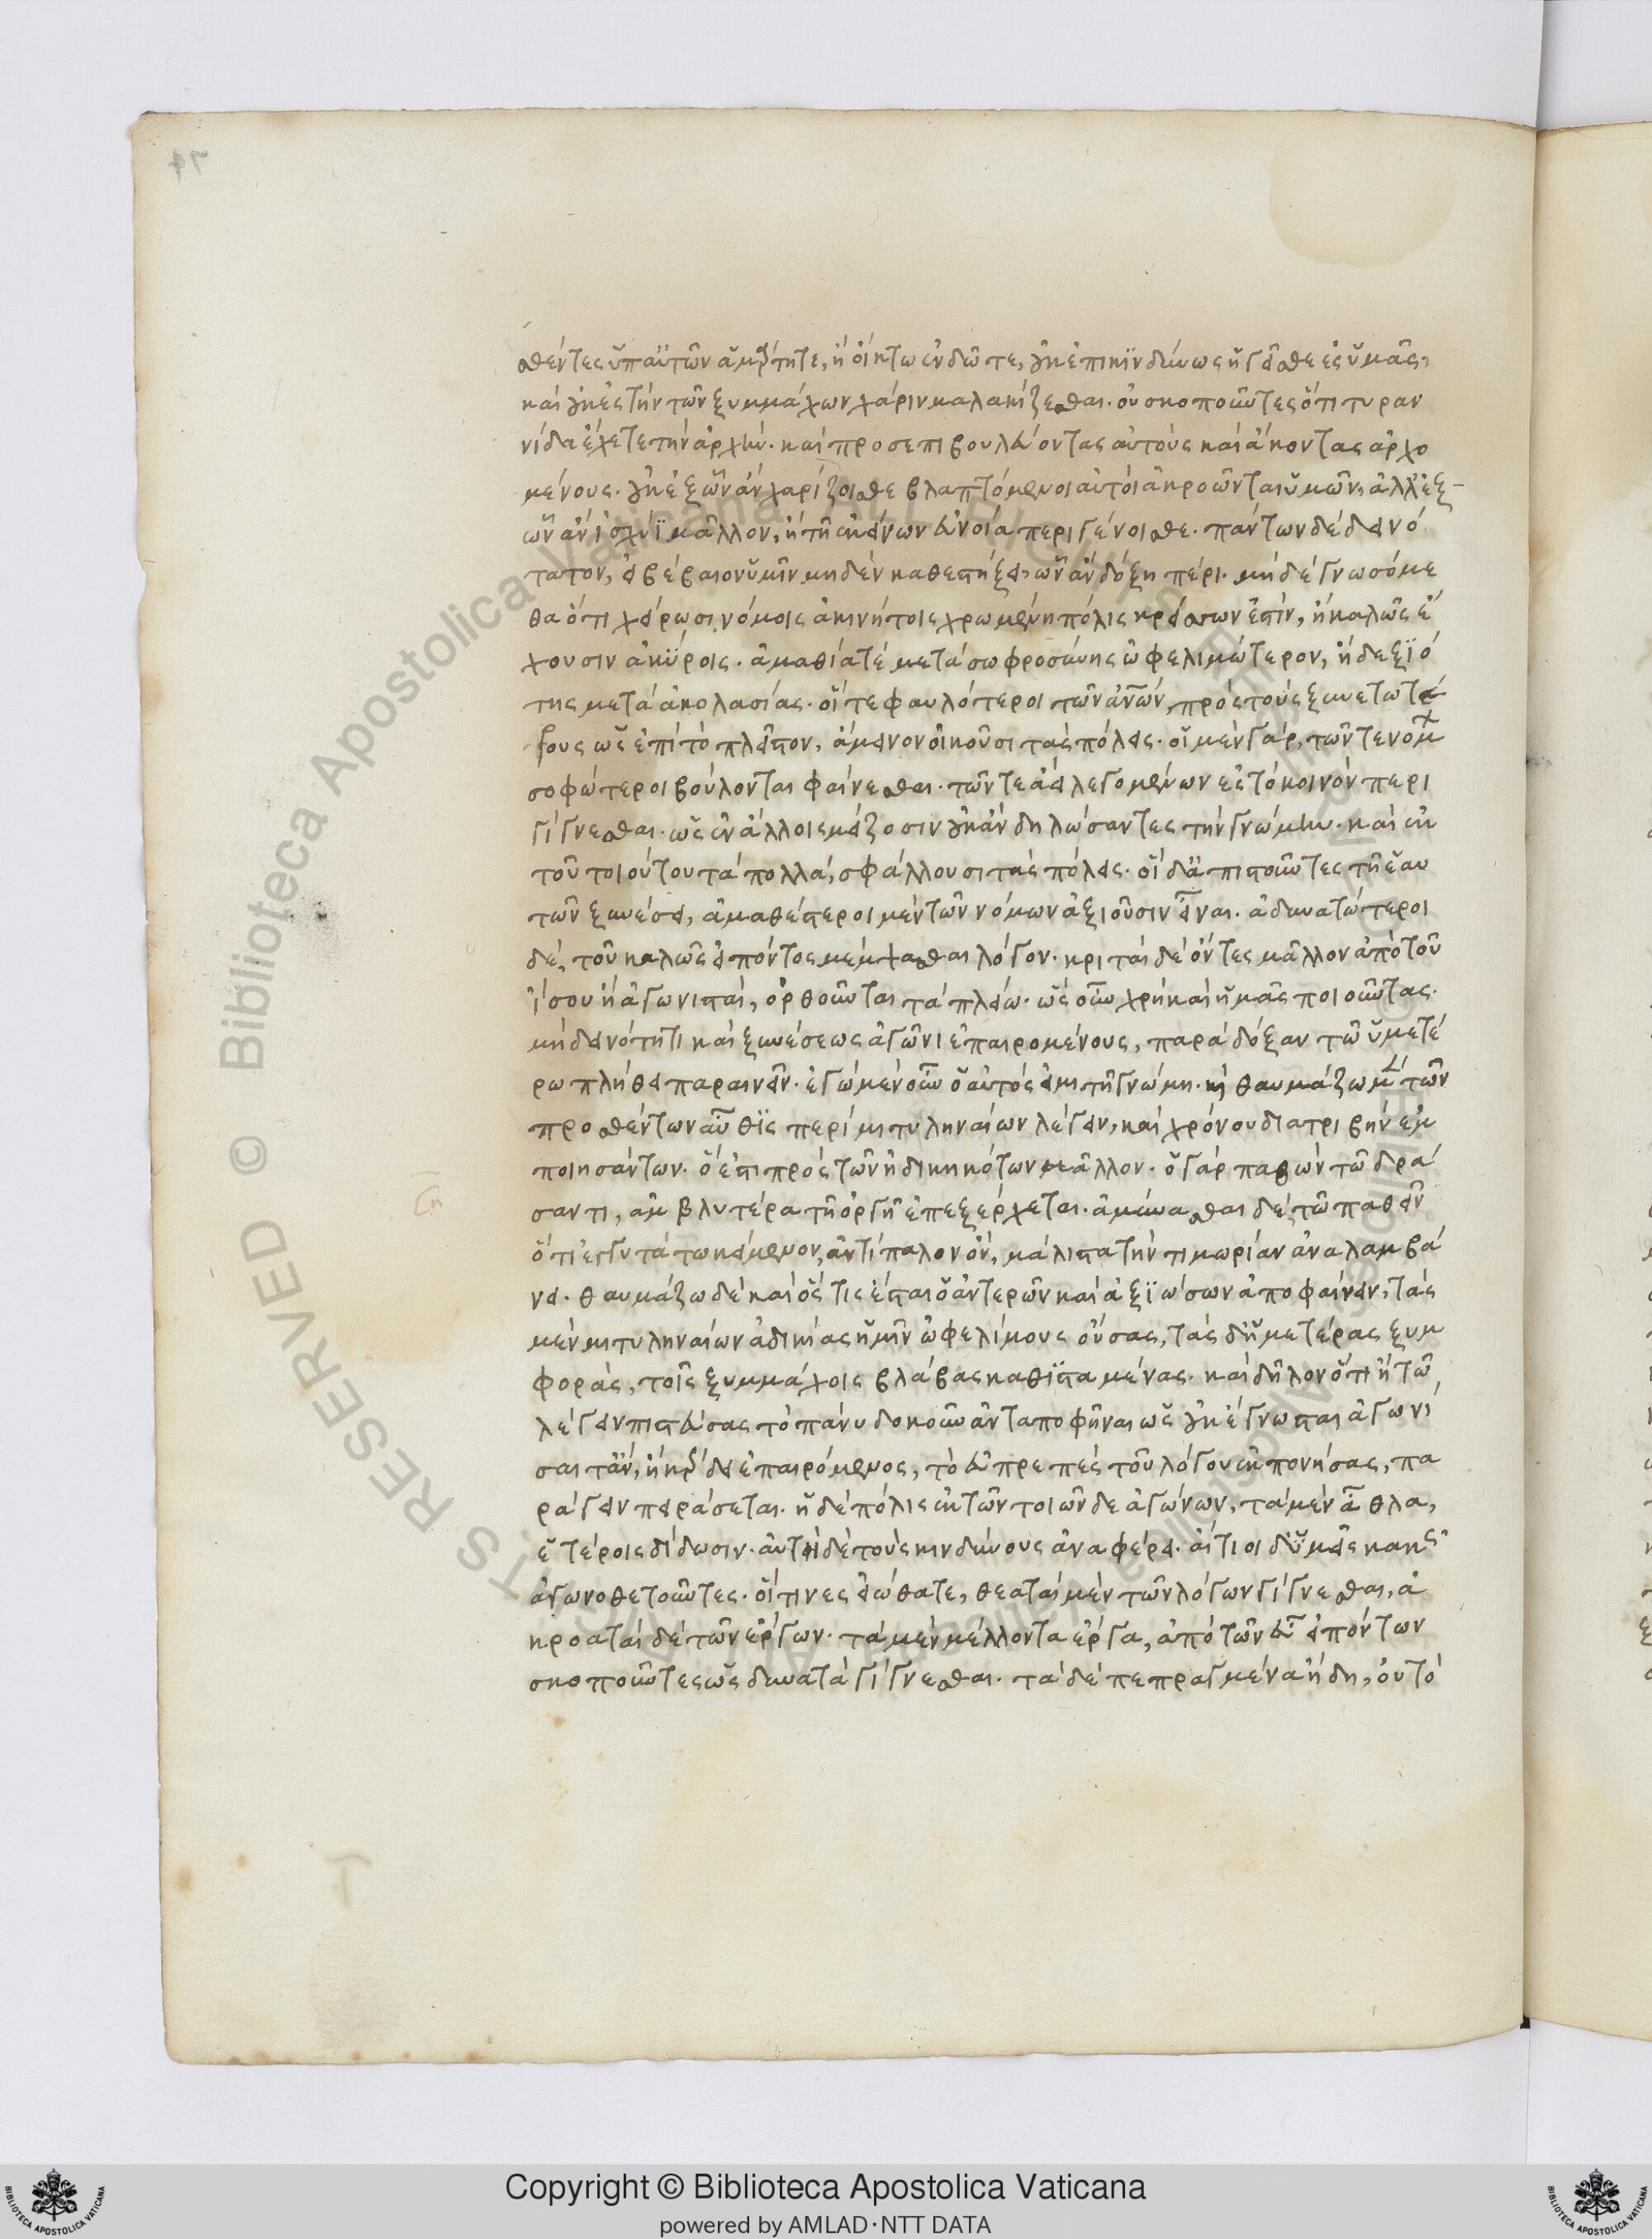 σθέντες ὑπ' αὐτῶν ἁμάρτητε, ἢ οἴκτω ἐνδῶτε, οὐκ ἐπικινδύνως ἡγεῖσθε ἐς ὑμᾶς,
καὶ οὐκ ἐς τὴν τῶν ξυμμάχων χάριν μαλακίζεσθαι. οὐ σκοποῦντες ὅτι τυραν
νίδα ἔχετε τὴν ἀρχήν. καὶ πρὸς ἐπιβουλεύοντας αὐτοὺς καὶ ἄκοντας ἀρχο
μένους. οὐκ ἐξ ὧν ἂν χαρίζοισθε βλαπτόμενοι αὐτοὶ ἀκροῶνται ὑμῶν, ἀλλ' ἐξ
ὧν ἂν ἰσχύϊ μᾶλλον, ἢ τῇ ἐκείνων εὐνοία περιγένοισθε. πάντων δὲ δεινό
τατον, εἰ βέβαιον ὑμῖν μηδὲν καθεστήξει, ὧν ἂν δόξη πέρι. μὴ δὲ γνωσόμε
θα ὅτι χείρωσι νόμοις ἀκινήτοις χρωμένη πόλις κρείσσων ἐστὶν, ἢ καλῶς ἔ
χουσιν ἀκύροις. ἀμαθία τὲ μετὰ σωφροσύνης ὠφελιμώτερον, ἢ δεξϊό
της μετὰ ἀκολασίας. οἵ τε φαυλότεροι τῶν ἀνων, πρὸς τοὺς ξυνετωτέ
ρους ὡς ἐπὶ τὸ πλεῖστον, ἄμεινον οἰκοῦσι τὰς πόλεις. οἱ μὲν γὰρ, τῶν τε νόμ
σοφώτεροι βούλονται φαίνεσθαι. τῶν τε ἀεὶ λεγομένων ἐς τὸ κοινὸν περι
γίγνεσθαι. ὡς ἐν ἄλλοις μείζοσιν οὐκ ἂν δηλώσαντες τὴν γνώμην. καὶ ἐκ
τοῦ τοιούτου τὰ πολλὰ, σφάλλουσι τὰς πόλεις. οἱ δ' ἀπιστοῦντες τῇ ἑαυ
τῶν ξυνέσει, ἀμαθέστεροι μὲν τῶν νόμων ἀξιοῦσιν εἶναι. ἀδυνατώτεροι
δὲ, τοῦ καλῶς εἰπόντος μέμψασθαι λόγον. κριταὶ δὲ ὄντες μᾶλλον ἀπὸ τοῦ
ἴσου ἢ ἀγωνισταὶ, ὀρθοῦνται τὰ πλείω. ὡς οὖν χρὴ καὶ ἡμᾶς ποιοῦντας.
μὴ δεινότητι καὶ ξυνέσεως ἀγῶνι ἐπαιρομένους, παρὰ δόξαν τῶ ὑμετέ
ρω πλήθει παραινεῖν. ἐγὼ μὲν οὖν ὁ αὐτός εἰμι τῇ γνώμη. καὶ θαυμάζω μὲν τῶν
προθέντων αὖθϊς περὶ μιτυληναίων λέγειν, καὶ χρόνου διατριβὴν ἐμ
ποιησάντων. ὅ ἐστι πρὸς τῶν ἠδικηκότων μᾶλλον. ὁ γὰρ παθὼν τῶ δρά
σαντι, ἀμβλυτέρα τῇ ὀργῇ ἐπεξέρχεται. ἀμύνασθαι δὲ, τῶ παθεῖν
ὅτι ἐγγυτάτω κείμενον, ἀντίπαλον ὂν, μάλιστα τὴν τιμωρίαν ἀναλαμβά
νει. θαυμάζω δὲ καὶ ὅς τις ἔσται ὁ ἀντερῶν καὶ ἀξϊώσων ἀποφαίνειν, τὰς
μὲν μιτυληναίων ἀδικίας ἡμῖν ὠφελίμους οὔσας, τὰς δ' ἡμετέρας ξυμ
φορὰς, τοῖς ξυμμάχοις βλάβας καθϊσταμένας. καὶ δῆλον ὅτι ἢ τῶ
λέγειν πιστεύσας τὸ πάνυ δοκοῦν ἀνταποφῆναι ὡς οὐκ ἔγνωσται ἀγωνί
σαιτ' ἂν, ἢ κέρδει ἐπαιρόμενος, τὸ εὐπρεπὲς τοῦ λόγου ἐκπονήσας, πα
ράγειν πειράσεται. ἡ δὲ πόλις ἐκ τῶν τοιῶνδε ἀγώνων, τὰ μὲν ἆθλα,
ἑτέροις δίδωσιν. αὐτὴ δὲ τοὺς κινδύνους ἀναφέρει. αἴτιοι δ' ὑμεῖς κακῶς
ἀγωνοθετοῦντες. οἵτινες εἰώθατε, θεαταὶ μὲν τῶν λόγων γίγνεσθαι, ἀ
κροαταὶ δὲ τῶν ἔργων. τὰ μὲν μέλλοντα ἔργα, ἀπὸ τῶν εὖ εἰπόντων
σκοποῦντες ὡς δυνατὰ γίγνεσθαι. τὰ δὲ πεπραγμένα ἤδη, οὐ τὸ
Copyright © Biblioteca Apostolica Vaticana
powered by AMLAD·NTT DATA